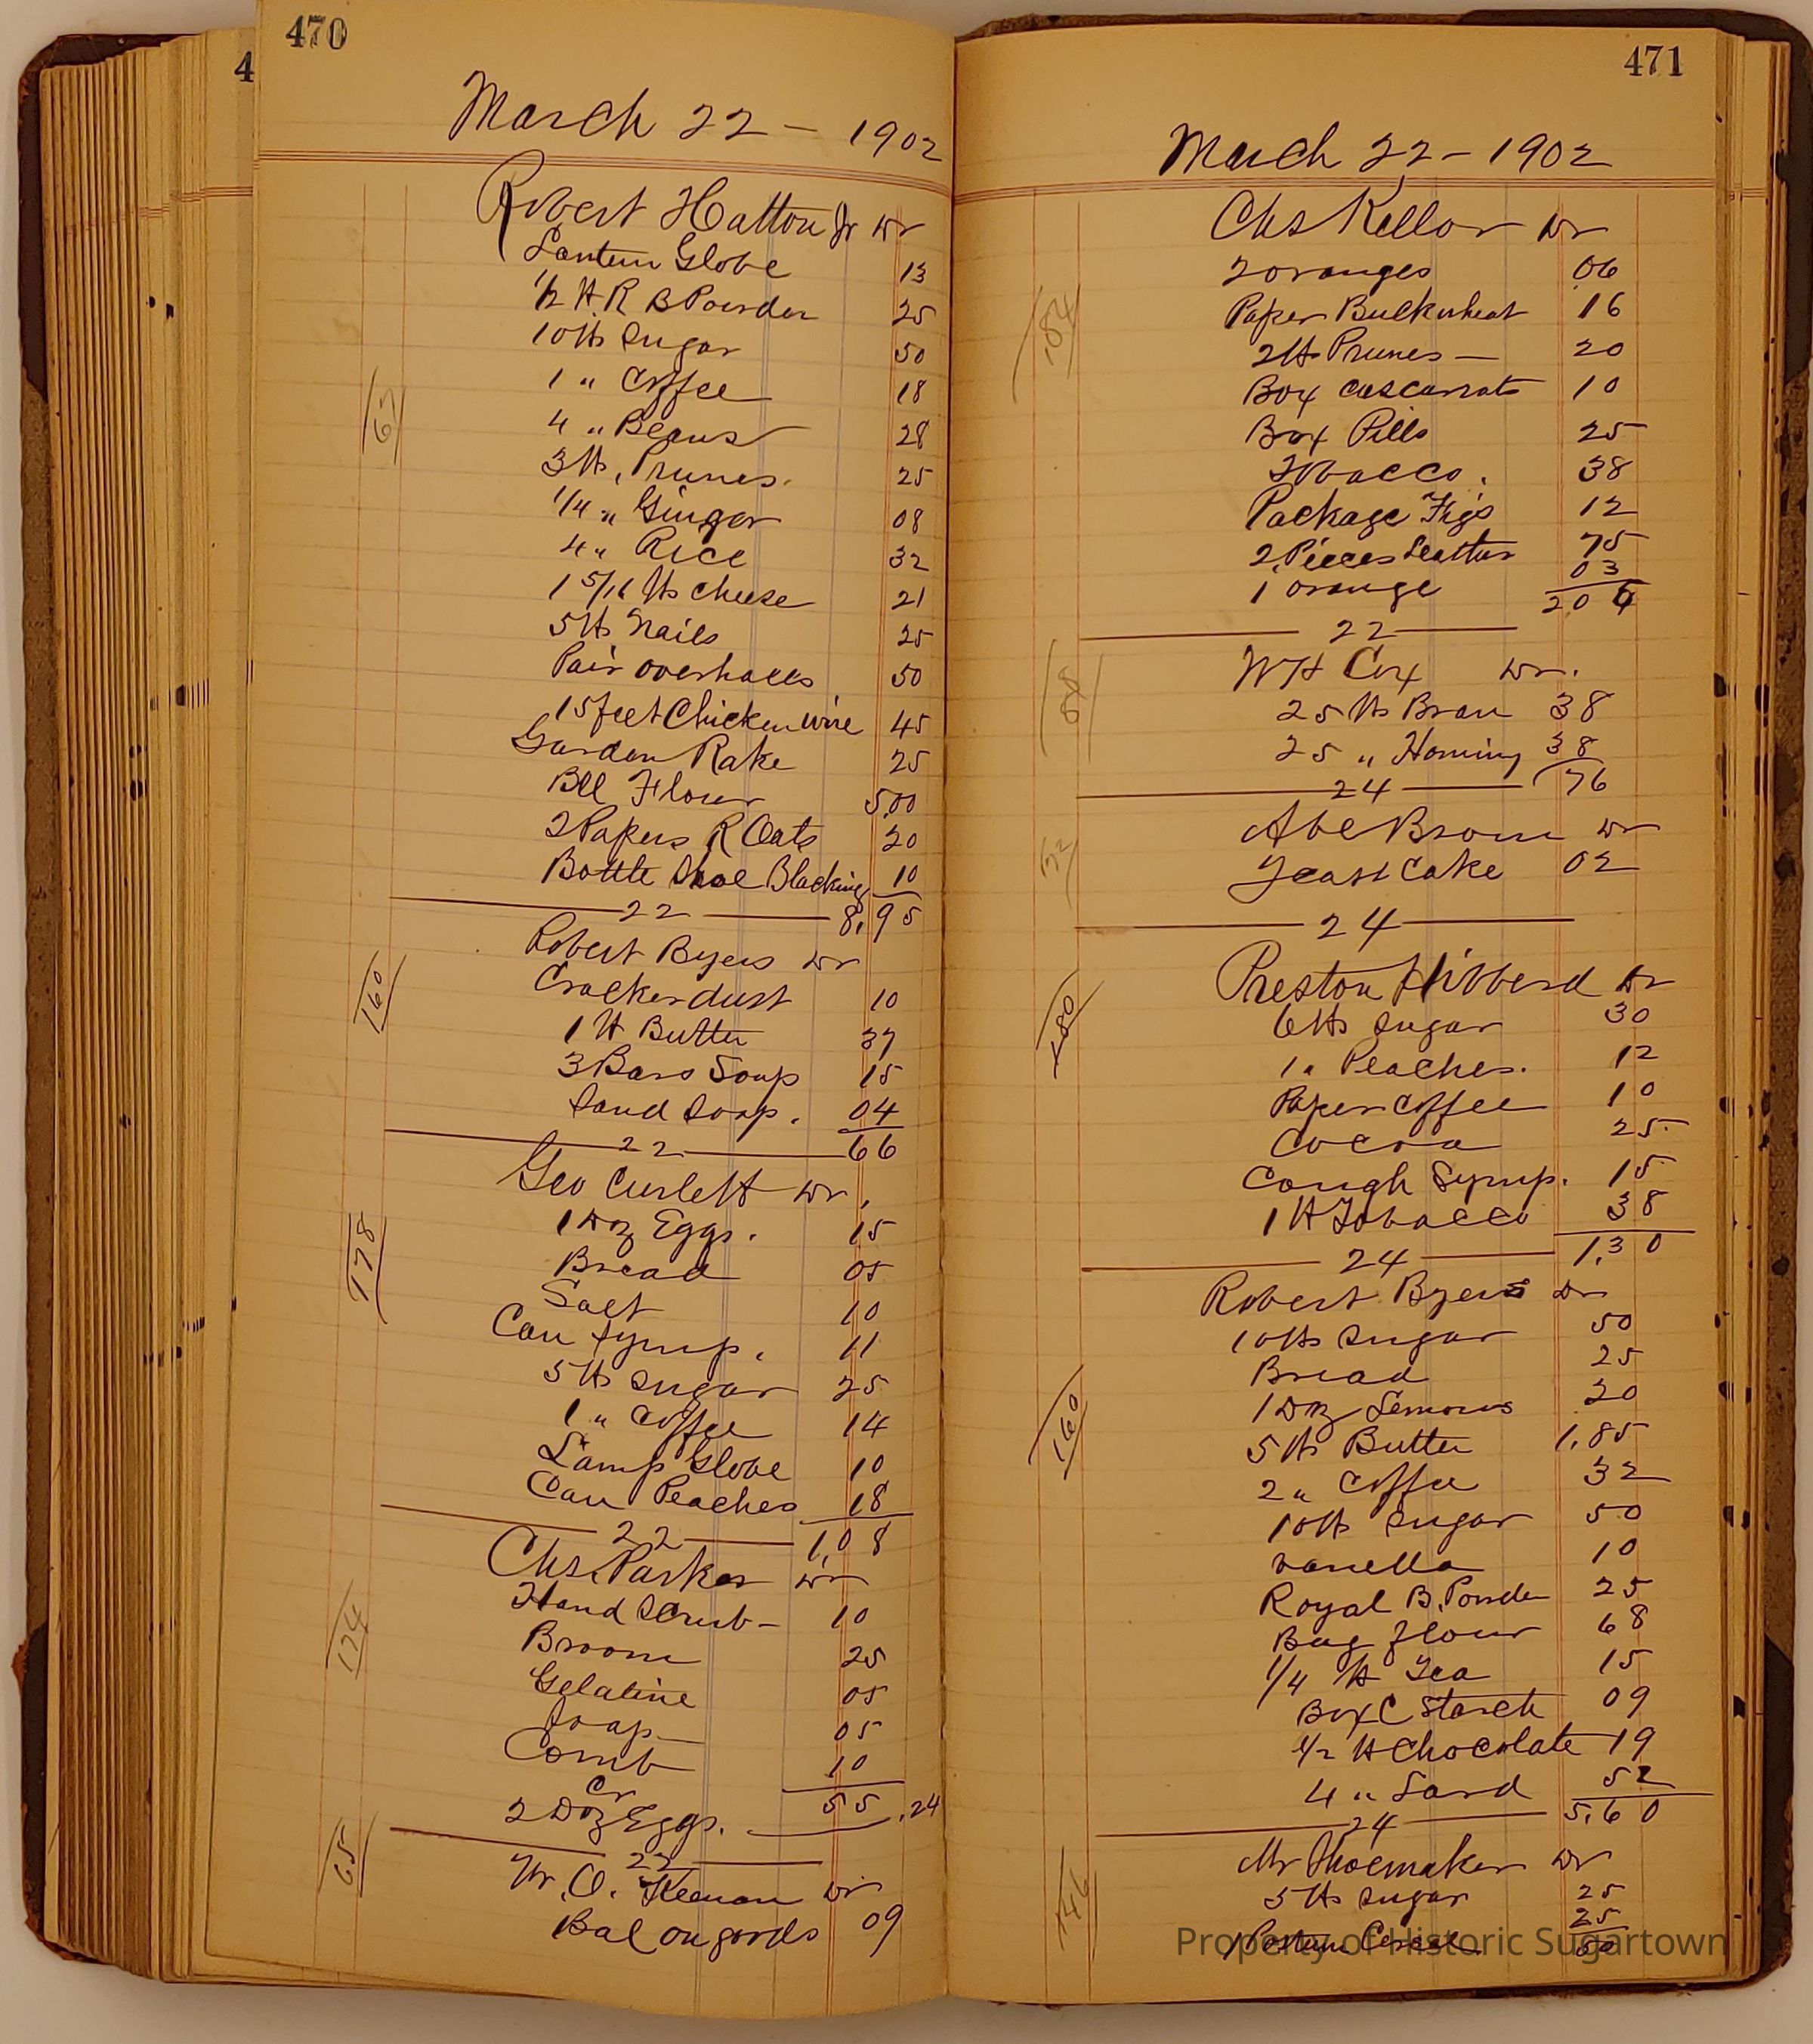 470
4
March 22 - 1902
Robert Hatton Jr Dr
Lantern Globe 13
1/2 lb R B Powder 25
10 lbs Sugar 50
1 " Coffee 18
4 " Beans 28
3 lbs, Prunes. 25
1/4 " Ginger 08
4 " Rice 32
1 5/16 lbs cheese 21
5 lbs Nails 25
Pair overhalls 50
15 feet Chicken wire 45
Garden Rake 25
Bll Flour 5.00
2 Papers R Oats 20
Bottle Shoe Blacking 10
22 8.95
Robert Byers Dr
160
Crackerdust 10
1 lb Butter 37
3 Bars Soap 15
Sand Soap. 04
22 66
Geo Curlett Dr.
178
1 Doz Eggs. 15
Bread 05
Salt 10
Can Syrup. 11
5 lbs Sugar 25
1 " Coffee 14
Lamp Globe 10
Can Peaches 18
22 1,08
Chs. Parker Dr
174
Hand Scrub - 10
Broom 25
Gelatine 05
Soap 05
Comb 10
Cr 55
2 Doz Eggs. .24
22
65
W. O. Keenan Dr
Bal on goods 09
471
March 22 - 1902
Chs Kellor Dr
2 oranges 06
Paper Buckwheat 16
2 lbs Prunes - 20
Box cascarrats 10
Box Pills 25
Tobacco. 38
Package Figs 12
2 Pieces Leather 75
1 orange 03
2.04
22
WH Cox Dr.
25 lbs Bran 38
25 " Hominy 38
24 76
Abe Brown Dr
Yeast Cake 02
24
Preston Hibberd Dr
180
6 lbs Sugar 30
1 " Peaches. 12
Paper Coffee 10
Cocoa 25
Cough Syrup. 15
1 lb Tobacco 38
24 1.30
Robert Byers Dr
160
10 lbs Sugar 50
Bread 25
1 Doz Lemons 20
5 lbs Butter 1.85
2 " Coffee 32
10 lbs Sugar 50
vanella 10
Royal B. Powder 25
Bag flour 68
1/4 lb Tea 15
Box C Starch 09
1/2 lb Chocolate 19
4 " Lard 52
24 5.60
Mr Shoemaker Dr
146
5 lbs Sugar 25
1 Postum Cereal. 25
50
Property of Historic Sugartown